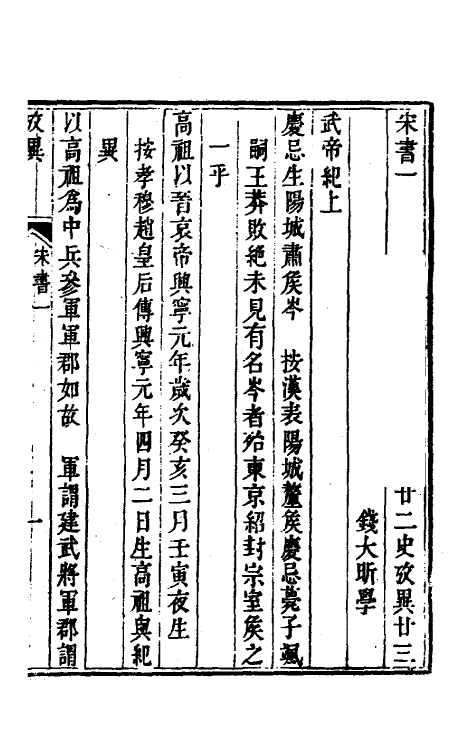 宋書一　廿二史攷異廿三
錢大昕學
武帝紀上
慶忌生陽城肅矦岑　按漢表陽城釐矦慶忌薨子颯
嗣王莽敗絶未見有名岑者殆東京紹封宗室矦之
一乎
高祖以晉哀帝興寧元年歲次癸亥三月壬寅夜生
按孝穆趙皇后傳興寧元年四月二日生高祖與紀
異
以高祖爲中兵參軍軍郡如故　軍謂建武將軍郡謂
攷異　宋書一　一